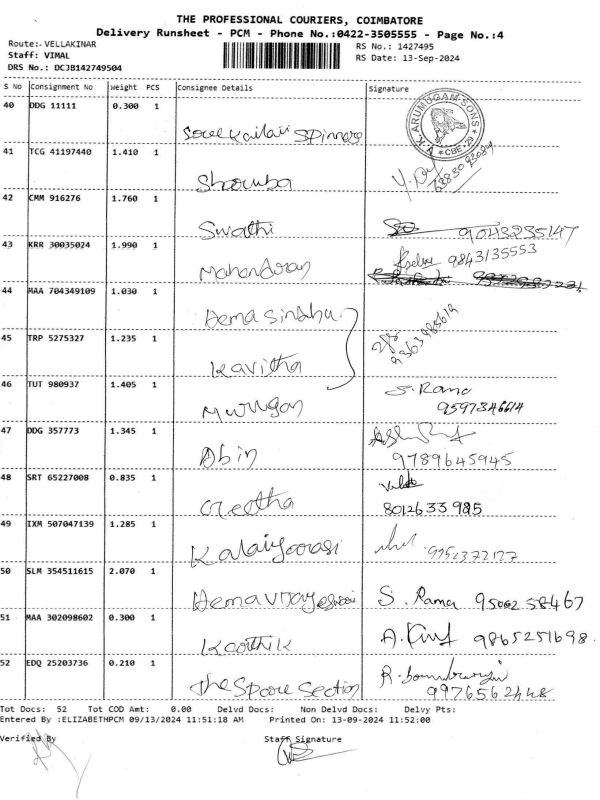 THE PROFESSIONAL COURIERS, COIMBATORE
Delivery Runsheet - PCM - Phone No.:0422-3505555 - Page No.:4
Route:- VELLAKINAR RS No.: 1427495
Staff: VIMAL RS Date: 13-Sep-2024
DRS No.: DCJB142749504
S No Consignment No Weight PCS Consignee Details Signature
40 DDG 11111 0.300 1
K. ARUMUGAM SONS CBE-29
Spinners
41 TCG 41197440 1.410 1
42 CMM 916276 1.760 1
Swathi 9043235147
43 KRR 30035024 1.990 1
9843135553
Mahendran
44 MAA 704349109 1.030 1
Hema Sindhu
45 TRP 5275327 1.235 1
Kavitha
46 TUT 980937 1.405 1
S. Rama
Murugan 9597346614
47 DDG 357773 1.345 1
Abin 9789645945
48 SRT 65227008 0.835 1
Geetha 8012633985
49 IXM 507047139 1.285 1
Kalaiyarasi
50 SLM 354511615 2.070 1
S. Rama 9500258467
51 MAA 302098602 0.300 1
Karthik A. 9865251698
52 EDQ 25203736 0.210 1
The Spare Section R.
Tot Docs: 52 Tot COD Amt: 0.00 Delvd Docs: Non Delvd Docs: Delvy Pts:
Entered By :ELIZABETHPCM 09/13/2024 11:51:18 AM Printed On: 13-09-2024 11:52:00
Verified By Staff Signature